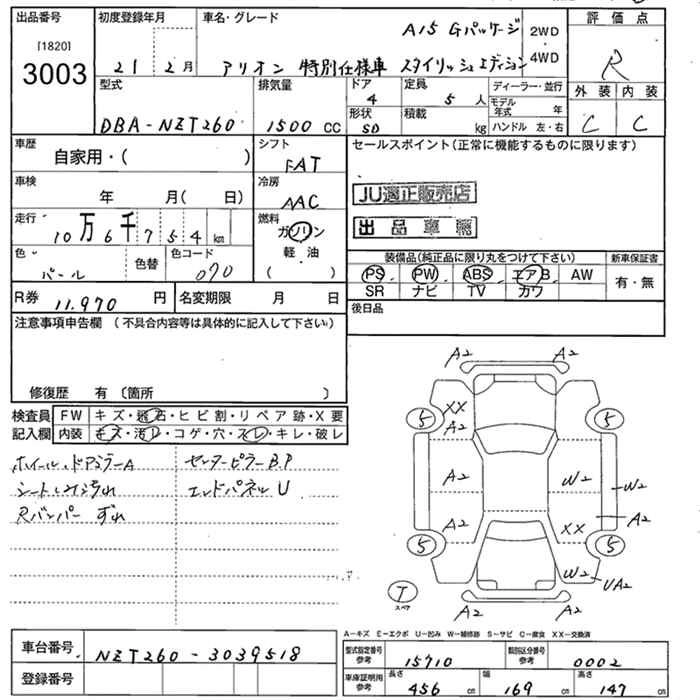 出品番号
[1820]
3003
初度登録年月
21 年 2 月
車名・グレード
A15 Gパッケージ
アリオン 特別仕様車 スタイリッシュエディション
2WD
4WD
評価点
R
外装 内装
C C
型式
DBA-NZT260
排気量
1500 CC
ドア
4
定員
5 人
形状
SD
積載
kg
ディーラー・並行
モデル年式 年
ハンドル 左・右
車歴
自家用・( )
シフト
FAT
車検
年 月( 日)
冷房
AAC
走行
10万6千754 km
燃料
ガソリン
軽・油
( )
色
パール
色替
色コード
070
R券 11,970 円
名変期限 月 日
セールスポイント(正常に機能するものに限ります)
JU適正販売店
出品車輌
装備品(純正品に限り丸をつけて下さい)
PS PW ABS エアB AW
SR ナビ TV カワ
新車保証書
有・無
後日品
注意事項申告欄 (不具合内容等は具体的に記入して下さい)
修復歴 有 〔箇所 〕
検査員記入欄
FW キズ・飛石・ヒビ割・リペア跡・X要
内装 キズ・汚レ・コゲ・穴・スレ・キレ・破レ
ホイール・ドアミラーA
シートしみ汚れ
Rバンパー ずれ
センターピラーB.P
エンドパネル U
A2 A2
XX
5 5
A2
A2 W2 W2
A2 XX A2
5 5
W2 UA2
T
スペア
A2 A2
A-キズ E-エクボ U-凹み W-補修跡 S-サビ C-腐食 XX-交換済
車台番号 NZT260-3039518
登録番号
型式指定番号
参考
15710
類別区分番号
参考
0002
車庫証明用
参考
長さ 456 cm
幅 169 cm
高さ 147 cm